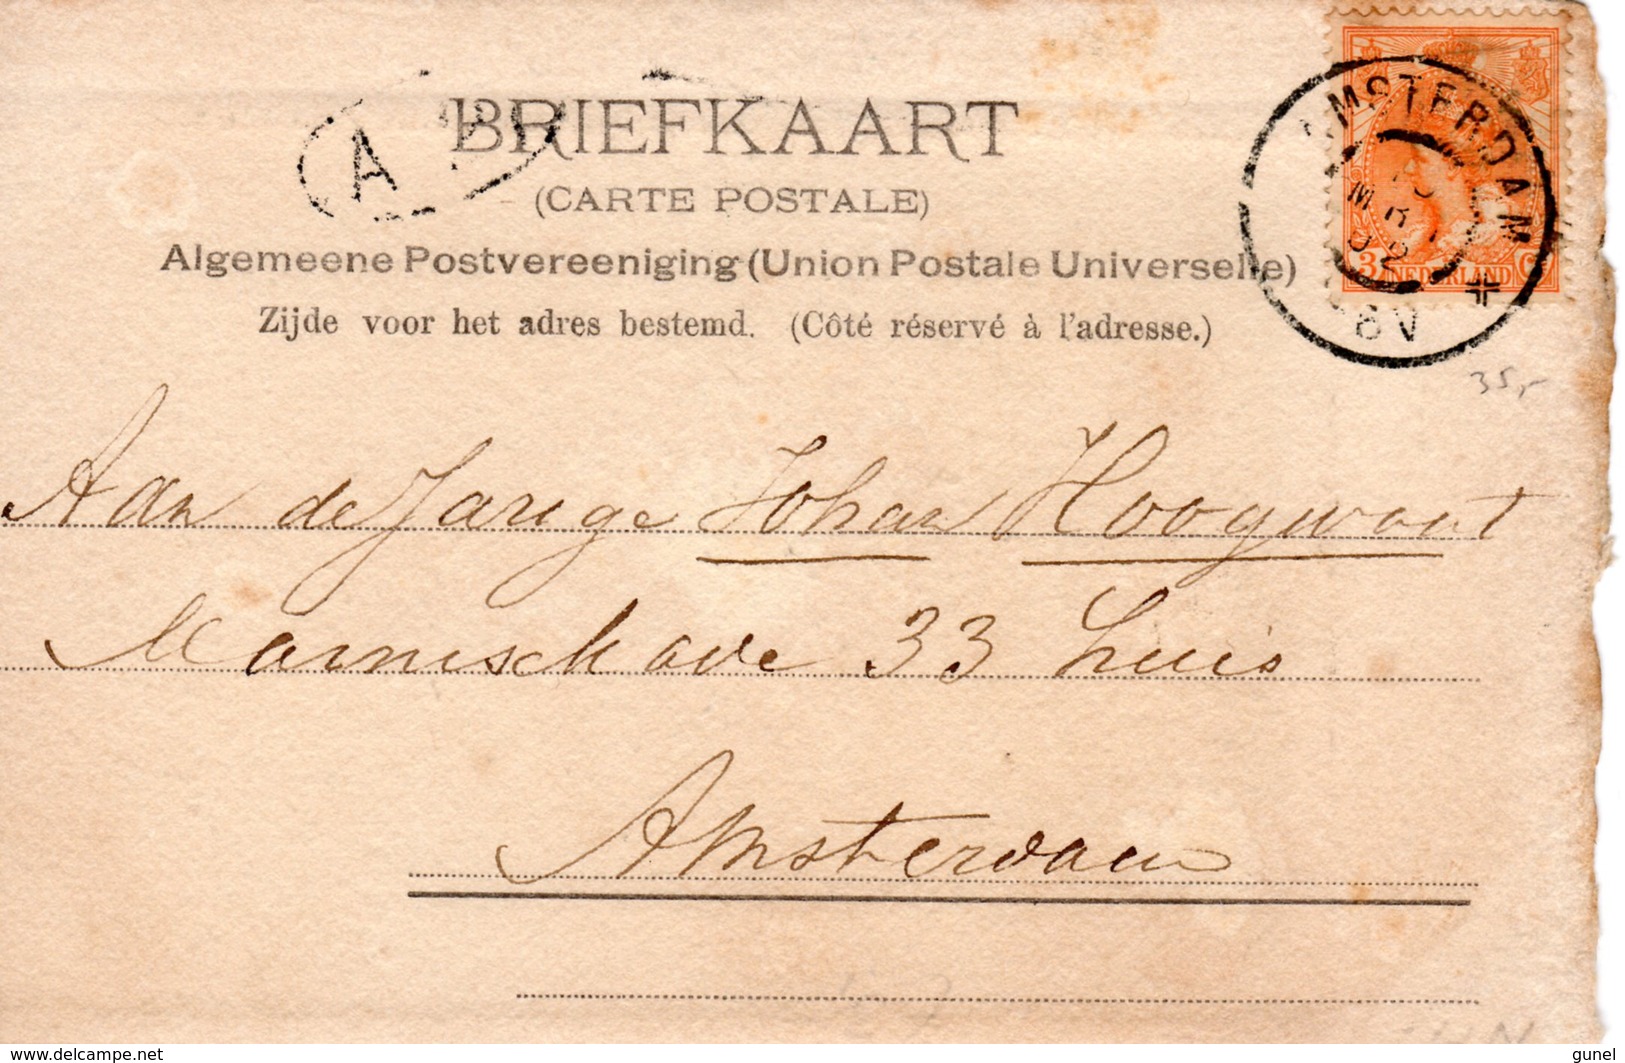 BRIEFKAART
(CARTE POSTALE)
Algemeene Postvereeniging (Union Postale Universelle)
Zijde voor het adres bestemd. (Côté réservé à l'adresse.)
A
AMSTERDAM
MRT
02
8V
3 NEDERLAND Ct
35,-
Aan de Jarige Johan Hoogwout
33 huis
Amsterdam
www.delcampe.net
gunel